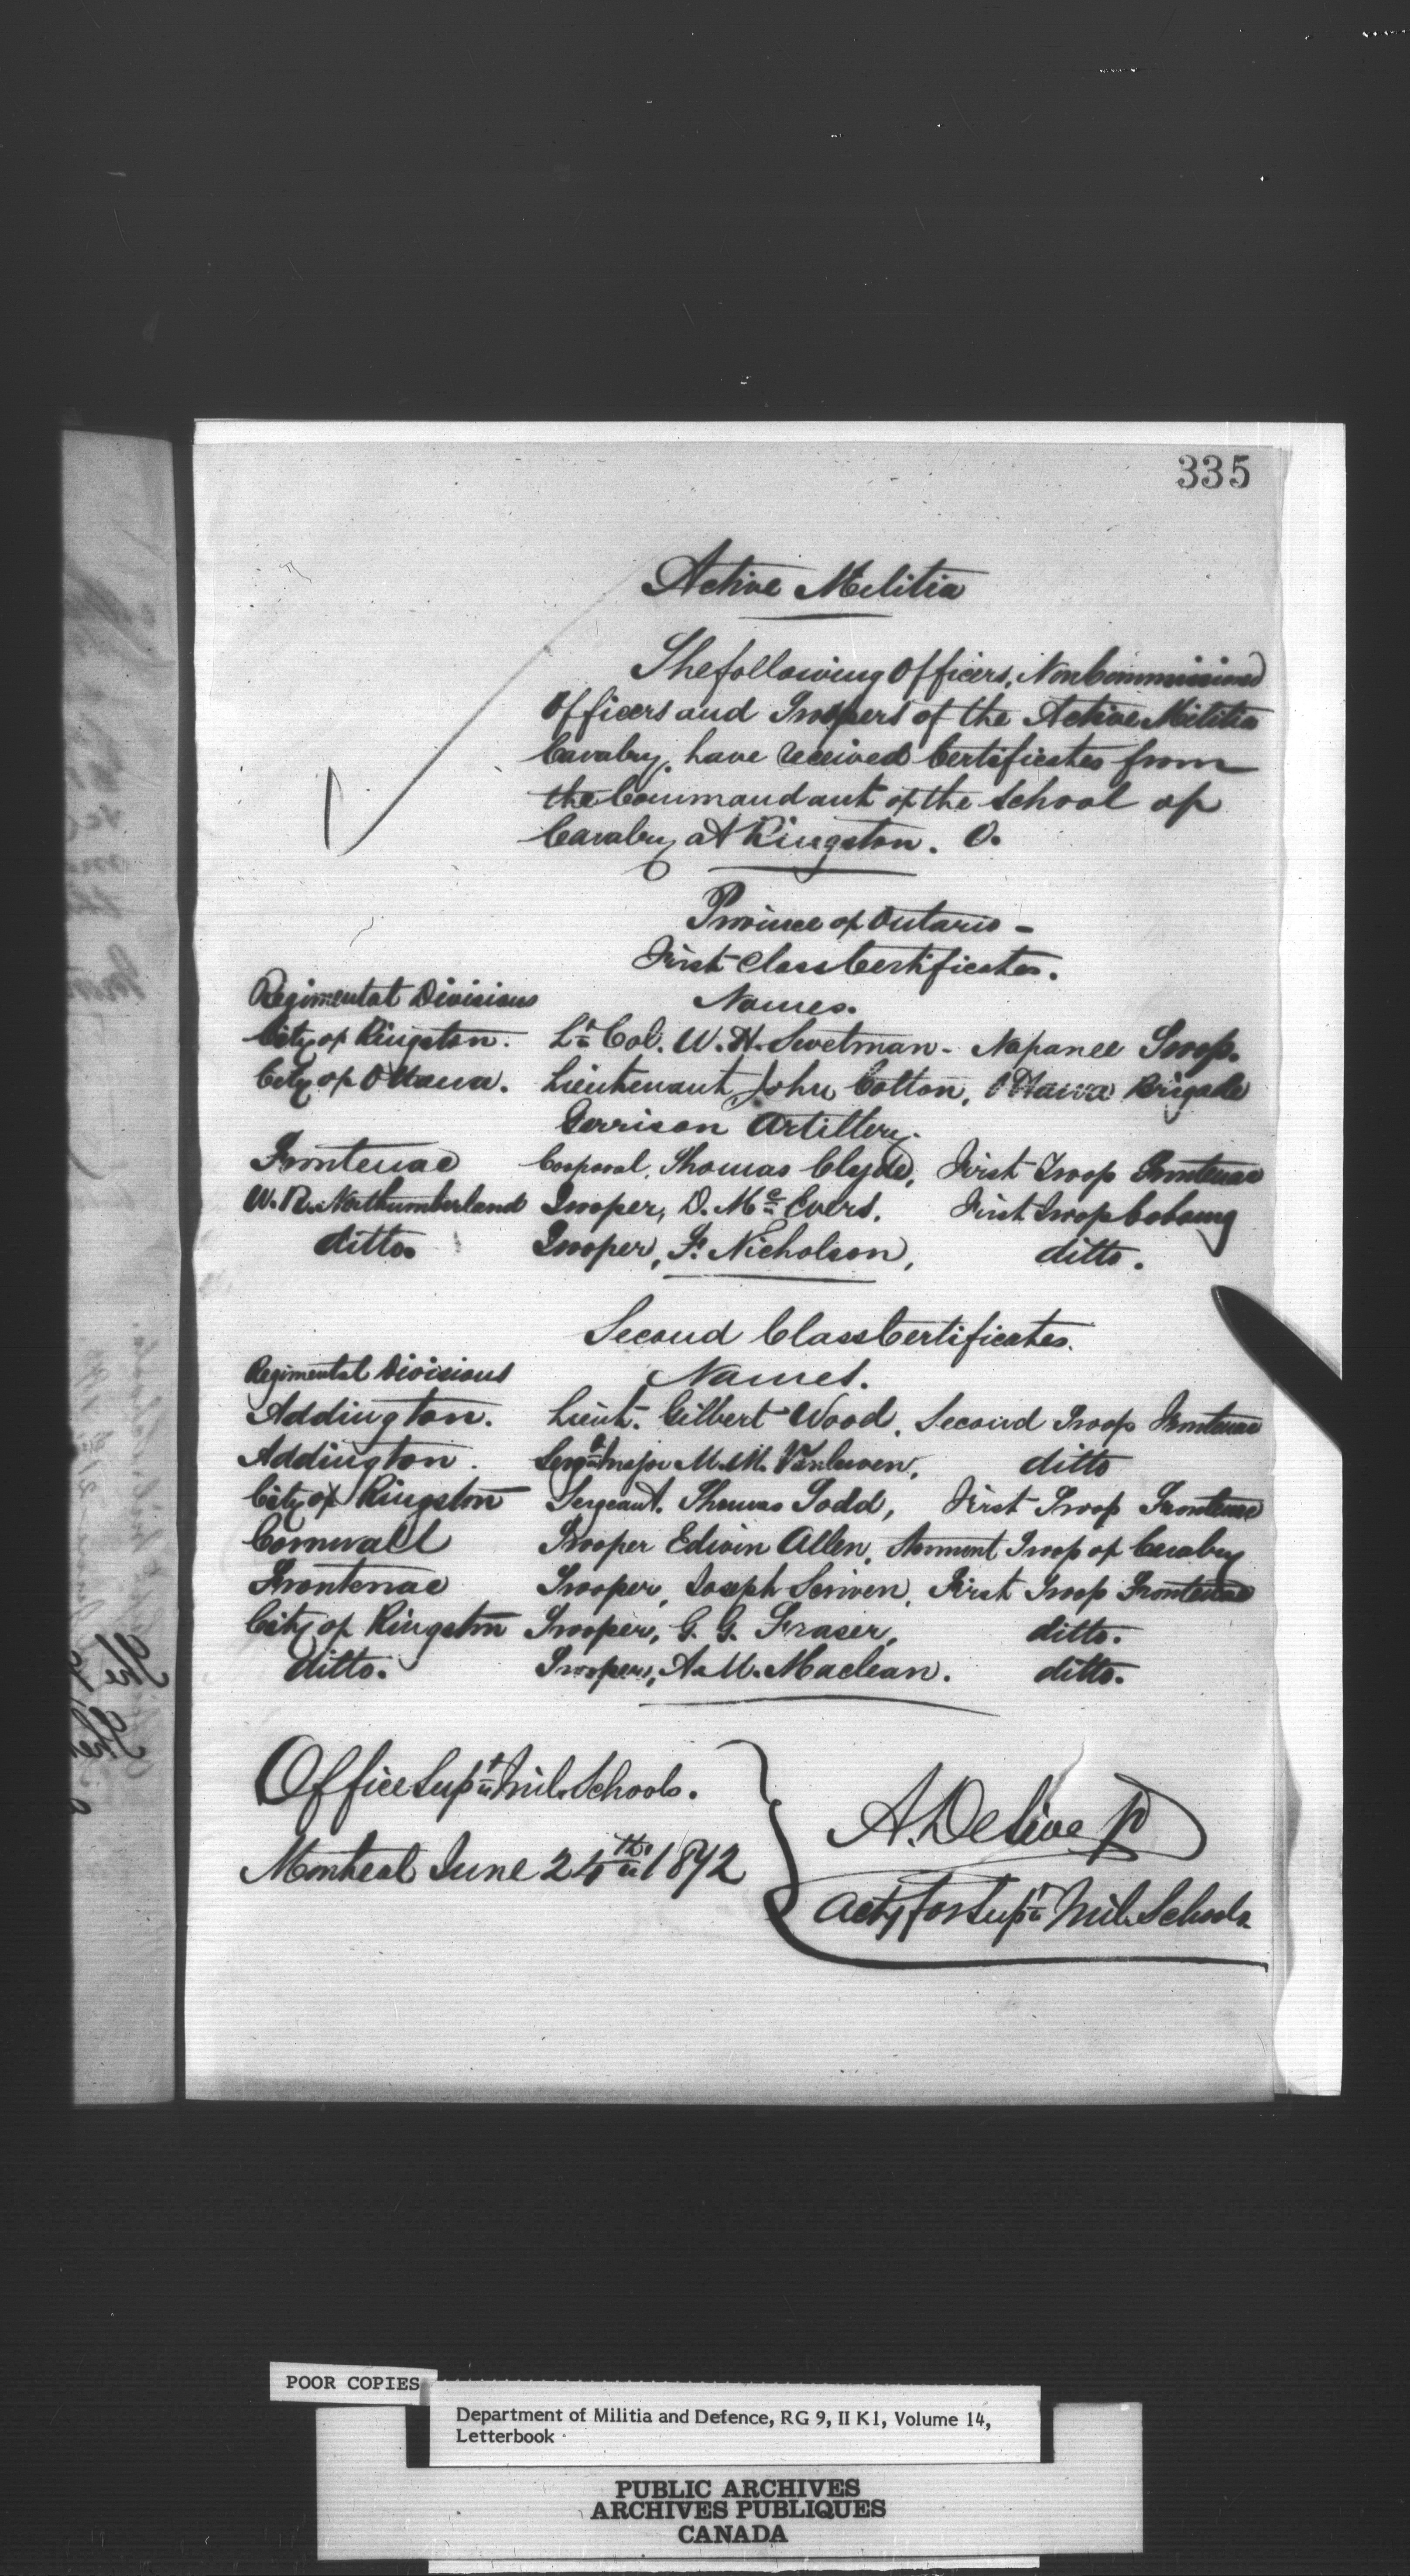 335
Active Militia
The following Officers, Non Commissioned
Officers and Troopers of the Active Militia
Cavalry, have received Certificates from
the Commandant of the School of
Cavalry at Kingston. O.
Province of Ontario -
First Class Certificates.
Regimental Divisions Names.
City of Kingston. Lt Col. W. H. Swetman - Napanee Troop.
City of Ottawa. Lieutenant John Cotton, Ottawa Brigade
Garrison Artillery.
Frontenac Corporal, Thomas Clyde, First Troop Frontenac
W. R. Northumberland Trooper, D. Mc Evers, First Troop Cobourg
ditto. Trooper, F. Nicholson, ditto.
Second Class Certificates.
Regimental Divisions Names.
Addington. Lieut. Gilbert Wood, Second Troop Frontenac
Addington. Sergt Major M. M. Vanluven, ditto
City of Kingston Sergeant. Thomas Todd, First Troop Frontenac
Cornwall Trooper Edwin Allen, Stormont Troop of Cavalry
Frontenac Trooper, Joseph Scriven, First Troop Frontenac
City of Kingston Trooper, G. G. Fraser, ditto.
ditto. Trooper, A. M. Maclean. ditto.
Office Supt Mil. Schools.
Montreal June 24th 1872
A. De
Actg for Supt Mil. Schools
POOR COPIES
Department of Militia and Defence, RG 9, II K1, Volume 14,
Letterbook
PUBLIC ARCHIVES
ARCHIVES PUBLIQUES
CANADA